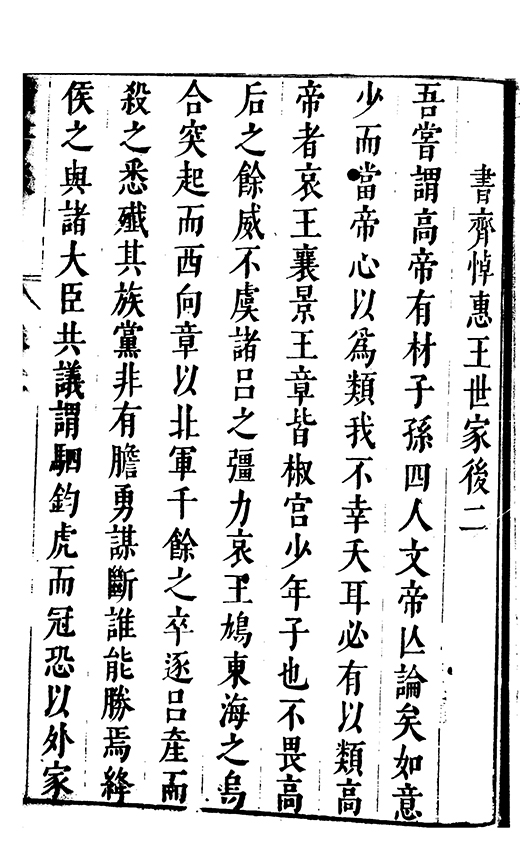 書齊悼惠王世家後二
吾嘗謂高帝有材子孫四人文帝亾論矣如意
少而當帝心以爲類我不幸夭耳必有以類高
帝者哀王襄景王章皆椒宫少年子也不畏高
后之餘威不虞諸吕之彊力哀王鳩東海之烏
合突起而西向章以北軍千餘之卒逐吕産而
殺之悉殲其族黨非有膽勇謀斷誰能勝焉絳
侯之與諸大臣共議謂駟鈞虎而冠恐以外家